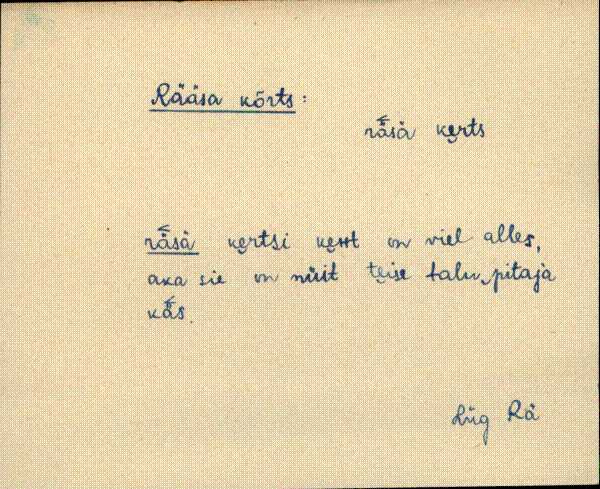 Rääsa kõrts:
rä̆sä ke̮rts
rä̆sä ke̮rtsi ke̮rt on viel alles,
aκa sie on nüit te̮ise talu‿pitaja
kä̆s.
Lüg Rä